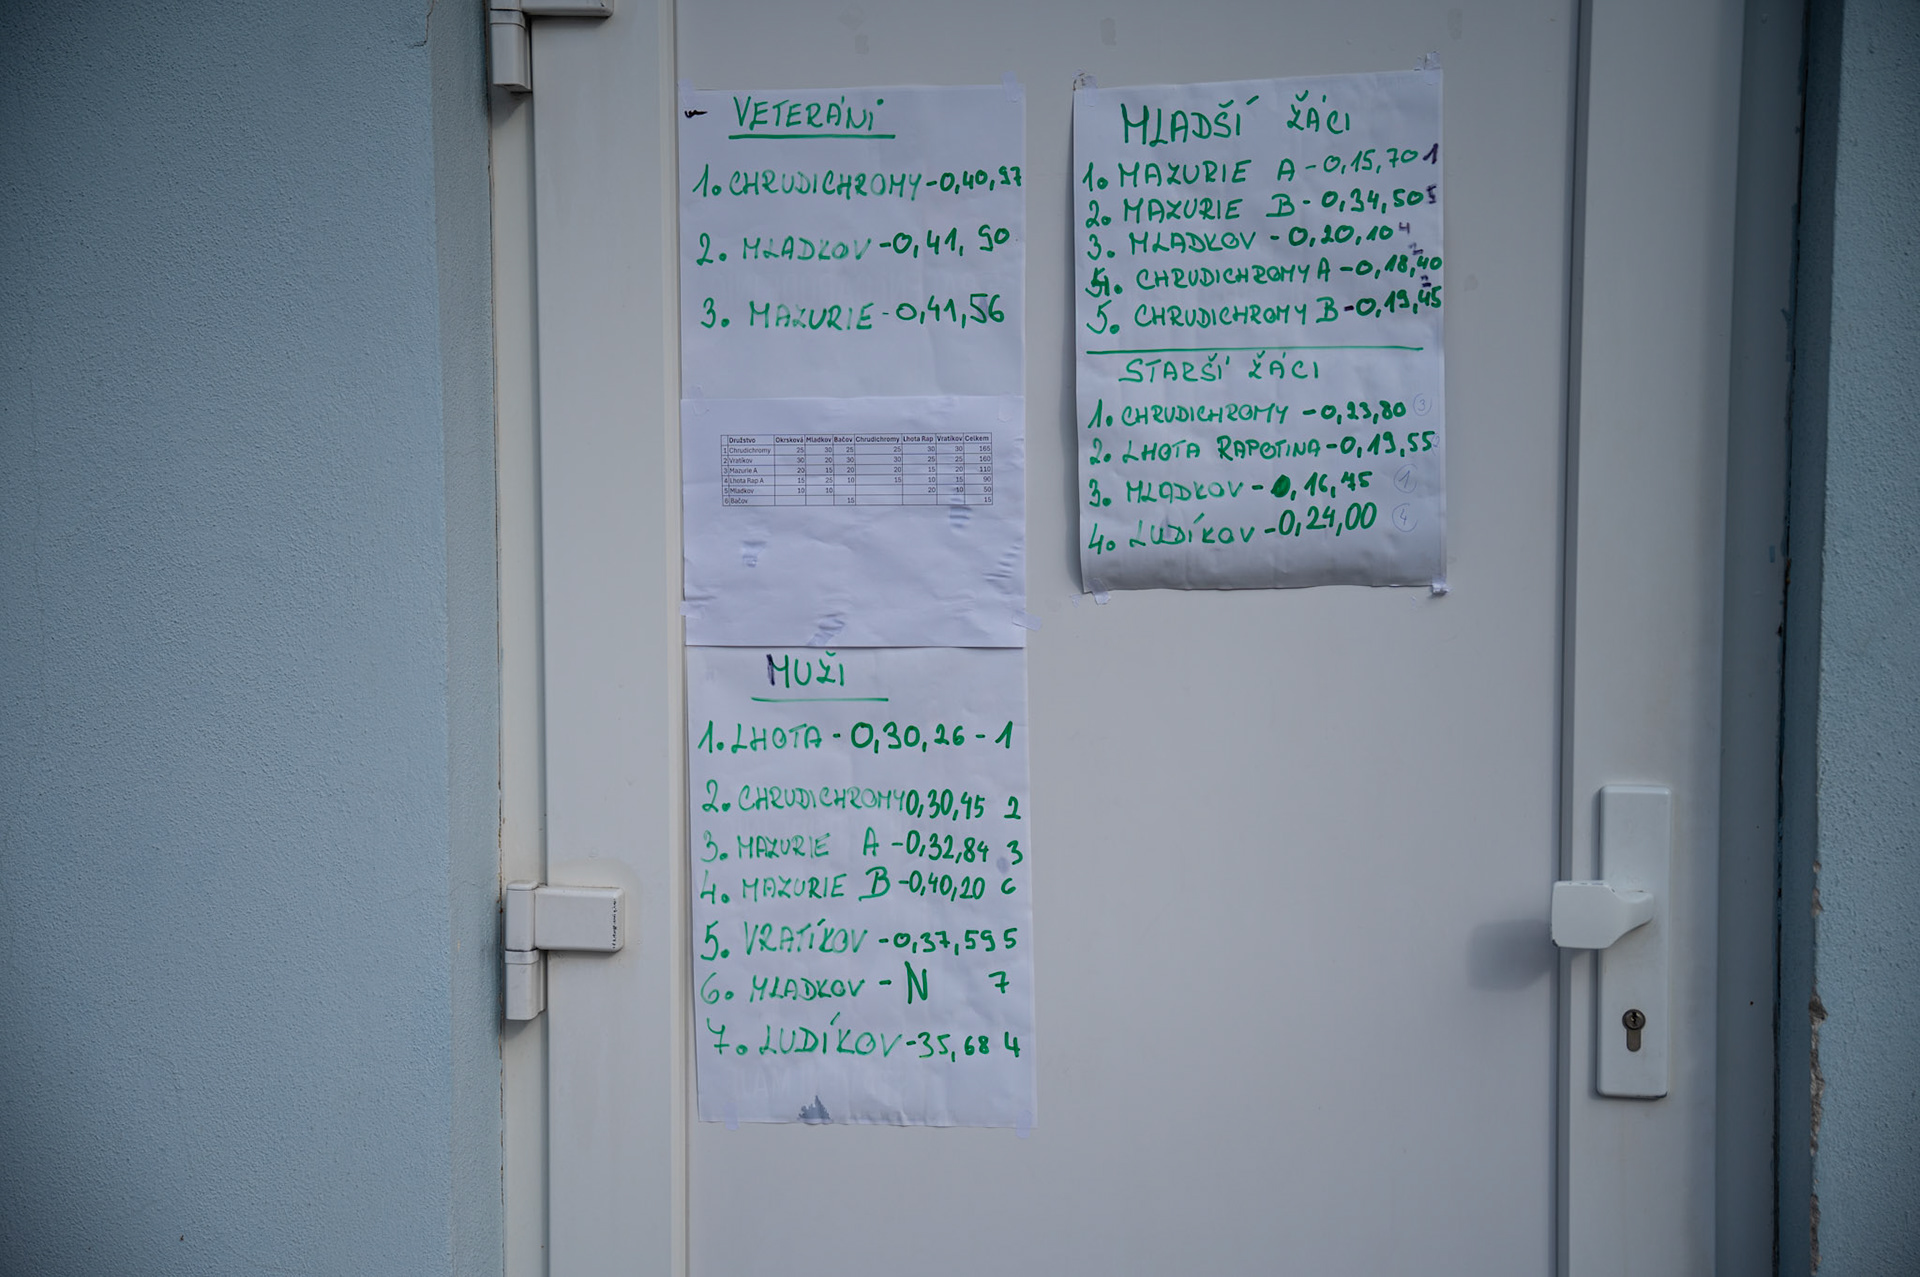 VETERÁNI
1. CHRUDICHROMY - 0,40,97
2. MLADKOV - 0,41, 90
3. MAZURIE - 0,41,56
Družstvo Okrsková Mladkov Bačov Chrudichromy Lhota Rap Vratíkov Celkem
1 Chrudichromy 25 30 25 25 30 30 165
2 Vratíkov 30 20 30 30 25 25 160
3 Mazurie A 20 15 20 20 15 20 110
4 Lhota Rap A 15 25 10 15 10 15 90
5 Mladkov 10 10 20 10 50
6 Bačov 15 15
MUŽI
1. LHOTA - 0,30,26 - 1
2. CHRUDICHROMY 0,30,45 2
3. MAZURIE A - 0,32,84 3
4. MAZURIE B - 0,40,20 6
5. VRATÍKOV - 0,37,59 5
6. MLADKOV - N 7
7. LUDÍKOV - 35,68 4
MLADŠÍ ŽÁCI
1. MAZURIE A - 0,15,70 1
2. MAZURIE B - 0,34,50 5
3. MLADKOV - 0,20,10 4
4. CHRUDICHROMY A - 0,18,40 2
5. CHRUDICHROMY B - 0,19,45 3
STARŠÍ ŽÁCI
1. CHRUDICHROMY - 0,23,80 3
2. LHOTA RAPOTINA - 0,19,55 2
3. MLADKOV - 0,16,45 1
4. LUDÍKOV - 0,24,00 4